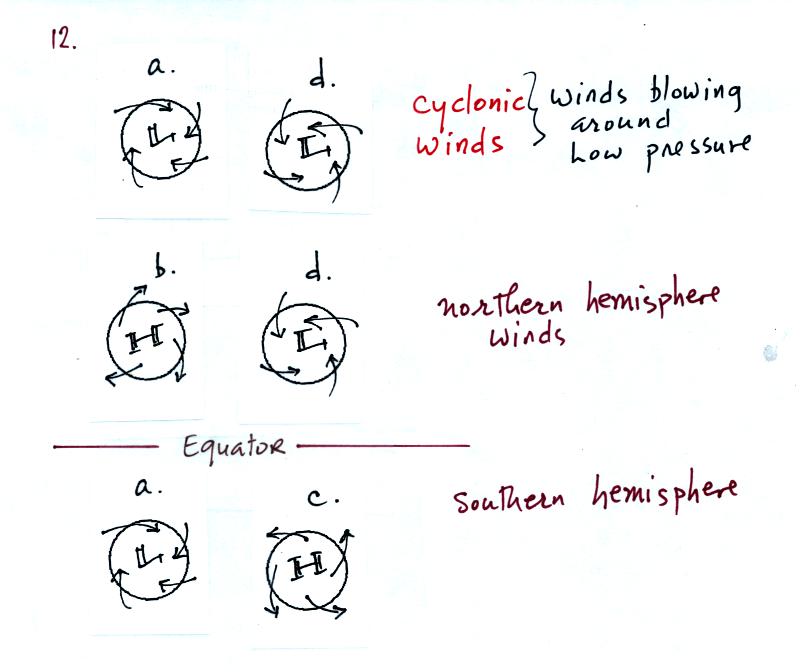 12.
a.
d.
L
L
cyclonic
winds
winds blowing
around
Low pressure
b.
d.
H
L
northern hemisphere
winds
Equator
a.
c.
L
H
Southern hemisphere